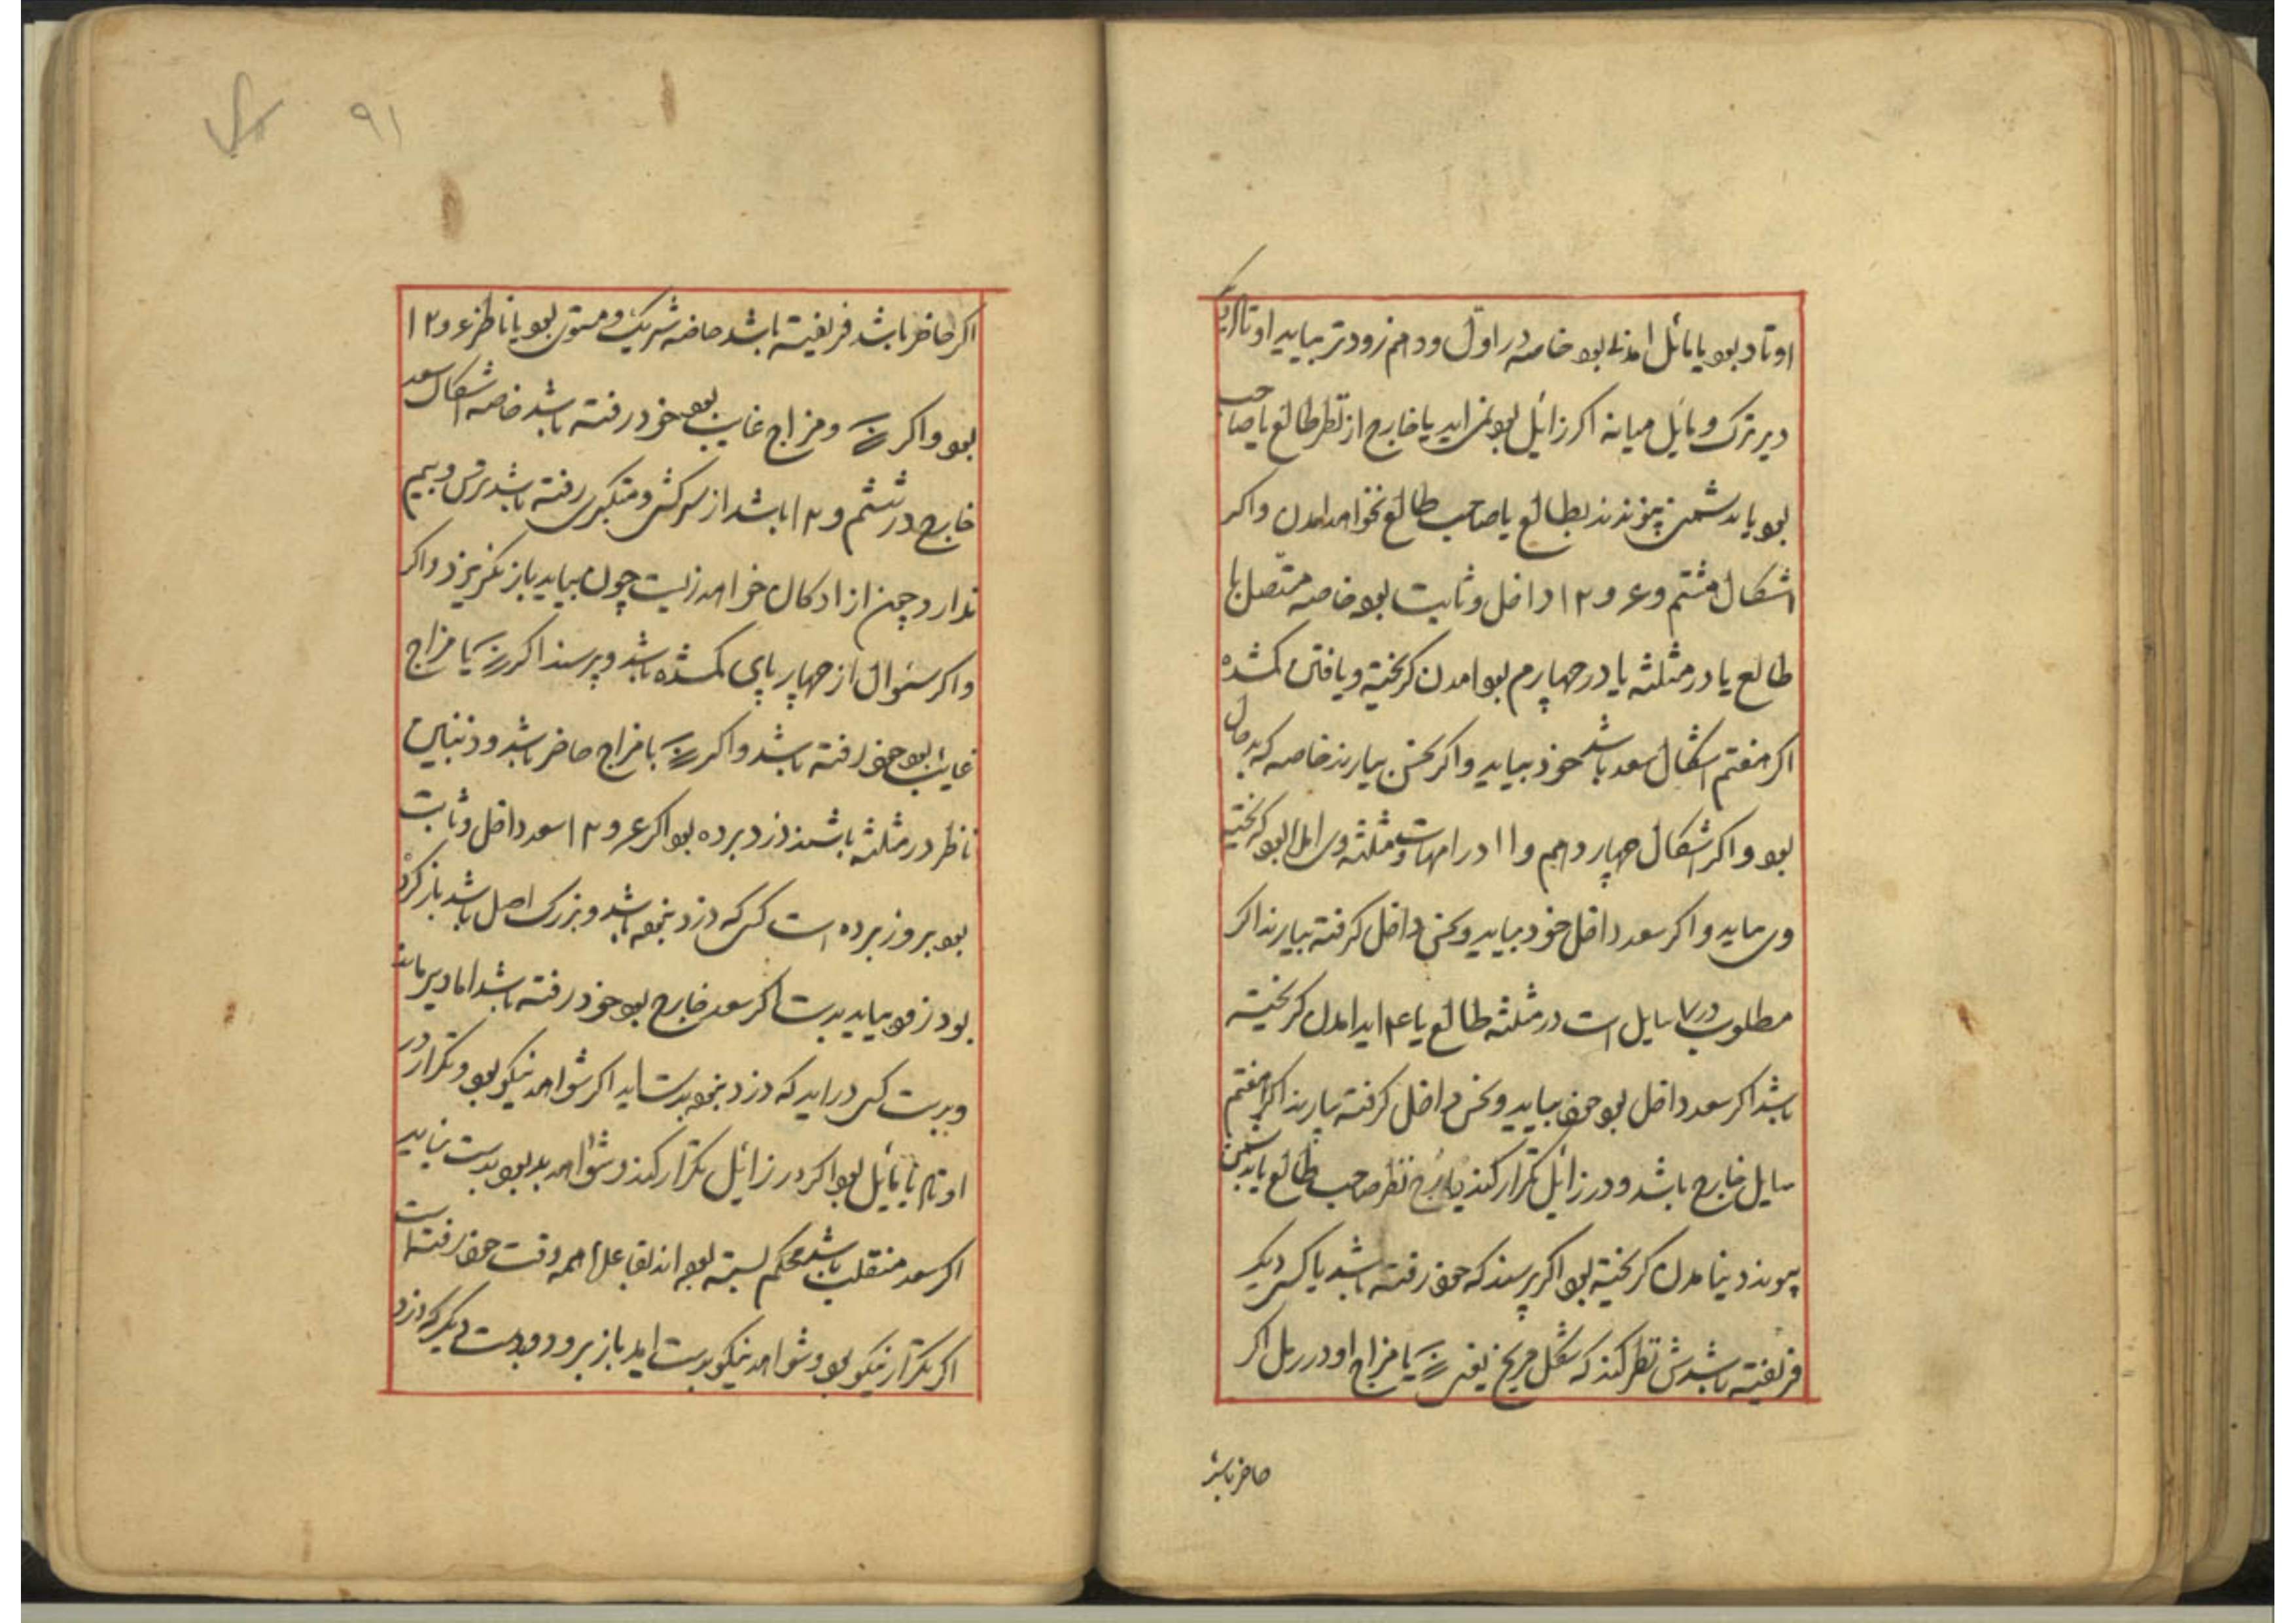 اوتاد بود یا مائل امدنی بود خاصه در اول و دهم زودتر بیاید اوتاد
دیرترک و مایل میانه اکر زائل بود نمی اید یا خارج از نظر طالع یا صاحب
بود یا بدشمن پیوندند بطالع یا صاحب طالع نخواهد امدن واکر
اشکال هشتم و ۶ و ۱۲ داخل و ثابت بود خاصه متصل با
طالع یا در مثلثه یا در چهارم بود امدن کریخته و یافتن کمشده
اکر هفتم اشکال سعد باشد خود بیاید واکر نحس بیارند خاصه که بدحال
بود واکر اشکال چهاردهم و ۱۱ در امهات مثلثه وی بود کریخته
وی بیاید واکر سعد داخل خود بیاید و نحس داخل کرفته بیارند اکر
مطلوب در ۷ سایل است در مثلثه طالع یا ۴ اید امدن کریخته
باشد اکر سعد داخل بود خود بیاید و نحس داخل کرفته بیارند اکر هفتم
سایل خارج باشد و در زائل تکرار کند نظر صاحب طالع یا بدشمن
پیوندد نیامدن کریخته بود اکر پرسند که خود رفته باشد یا کسی دیکر
فریفته باشدش نظر کنند که شکل مریخ یعنی یا مزاج او در رمل اکر
حاضر باشد
۹۱
اکر حاضر باشد فریفته باشد خاصه شریک و مستوی بود یا ناظر ۶ و ۱۲
بود واکر و مزاج غایب بود خود رفته باشد خاصه اشکال سعد
خارج در ششم و ۱۲ باشد از سرکشی و متکبری رفته باشد ترس و بیم
ندارد چون ازادکان خواهد زیست چون بیاید باز بکریزد واکر
واکر سئوال از چهارپای کمشده باشد و پرسند اکر یا مزاج
غایب بود خود رفته باشد واکر با مزاج حاضر باشد و ذنبین
ناظر در مثلثه باشند دزد برده بود اکر ۶ و ۱۲ سعد داخل و ثابت
بود بروز برده است کسی که دزد نبود باشد و بزرک اصل باشد باز کردد
بود زود بیاید بدست اکر سعد خارج بود خود رفته باشد اما دیر ماند
و بدست کسی دراید که دزد نبود بدست اید اکر شواهد نیکو بود و تکرار در
اوتاد یا مایل بود اکر در زائل تکرار کند و شواهد بد بود بدست نیاید
اکر سعد منقلب باشد محکم بسته بود همه وقت خود رفته است
اکر تکرار نیکو بود و شواهد نیکو بدست اید باز برود و بدست دیکر که دزد